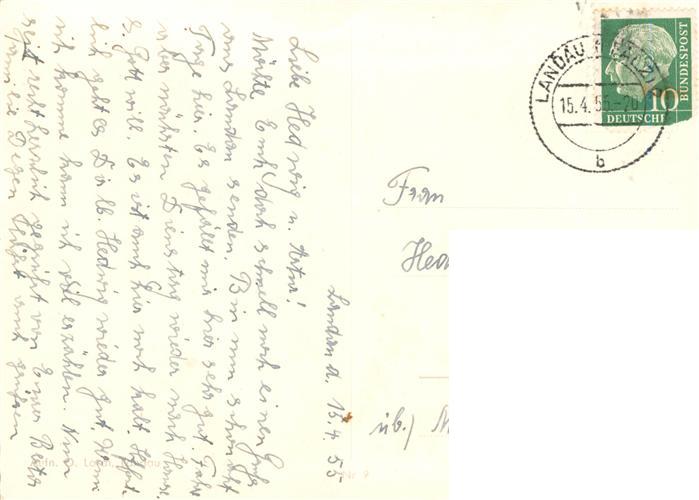 Landau d. 15.4.55
Liebe Hedwig u. Artur!
Möchte Euch doch schnell noch einen Gruß
aus Landau senden. Bin nun schon acht
Tage hier. Es gefällt mir hier sehr gut. Fahre
aber nächsten Dienstag wieder nach Hause,
s. Gott will. Es ist auch hier noch kalt. Hoffent-
lich geht es Dir lb. Hedwig wieder gut. Wenn
ich komme kann ich viel erzählen. Nun
seid recht herzlich gegrüßt von Eurer Berta
auch grüßen
Frau
Hed
üb./ M
LANDAU (PFALZ)
15.4.55.-20
b
10
DEUTSCHE
BUNDESPOST
Nr 9